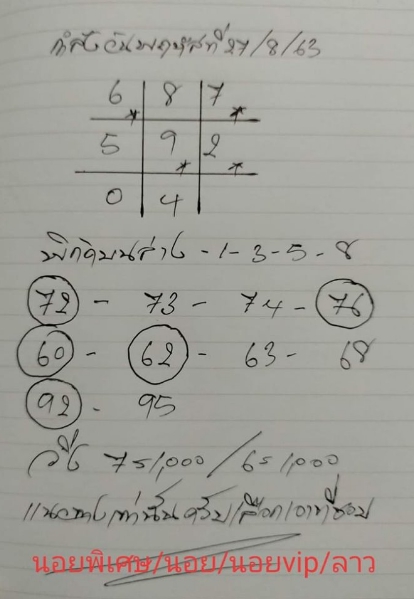 กำลังวันพฤหัสที่ 27/8/63
6 8 7
5 9 2
0 4
พิกัดบนล่าง - 1 - 3 - 5 - 8
72 - 73 - 74 - 76
60 - 62 - 63 - 68
92 - 95
วิ่ง 7=1,000 / 6=1,000
แนวทางเท่านั้นครับ เลือกเอาที่ชอบ
นอยพิเศษ/นอย/นอยvip/ลาว